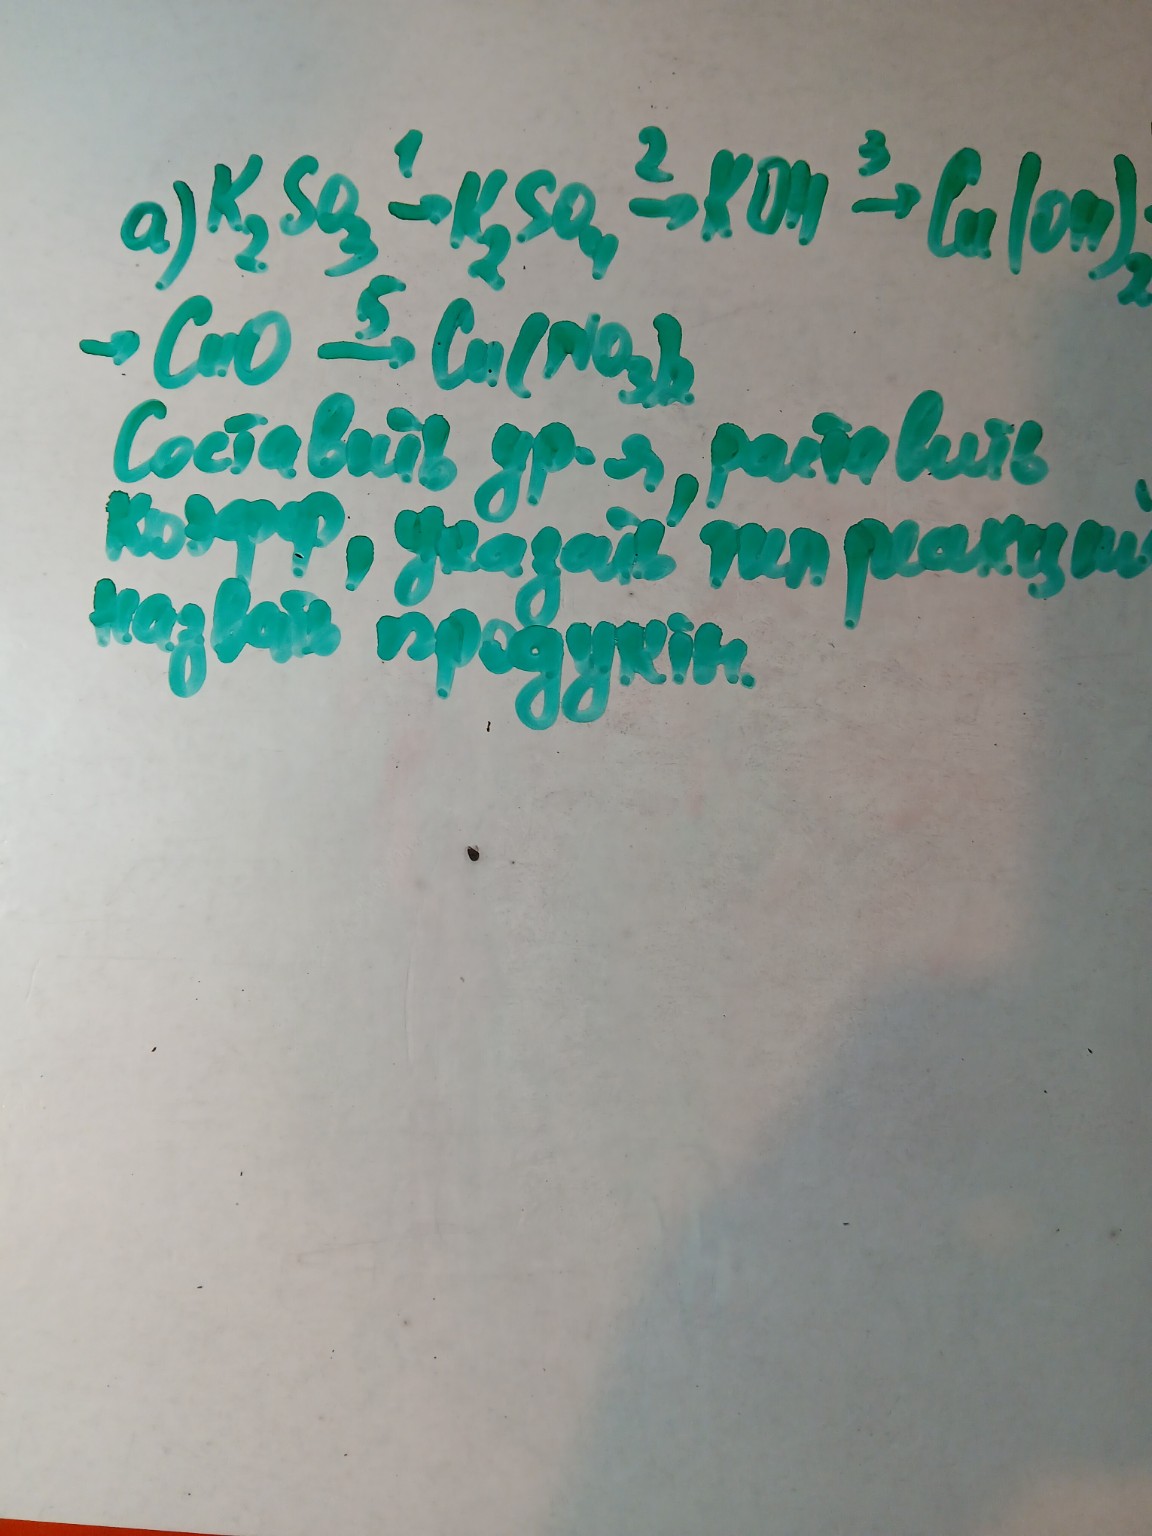 а) K₂SO₃ →¹ K₂SO₄ →² KOH →³ Cu(OH)₂
→ CuO →⁵ Cu(NO₃)₂
Составить ур-я, раставить
коэфф, указать тип реакций
назвать продукты.